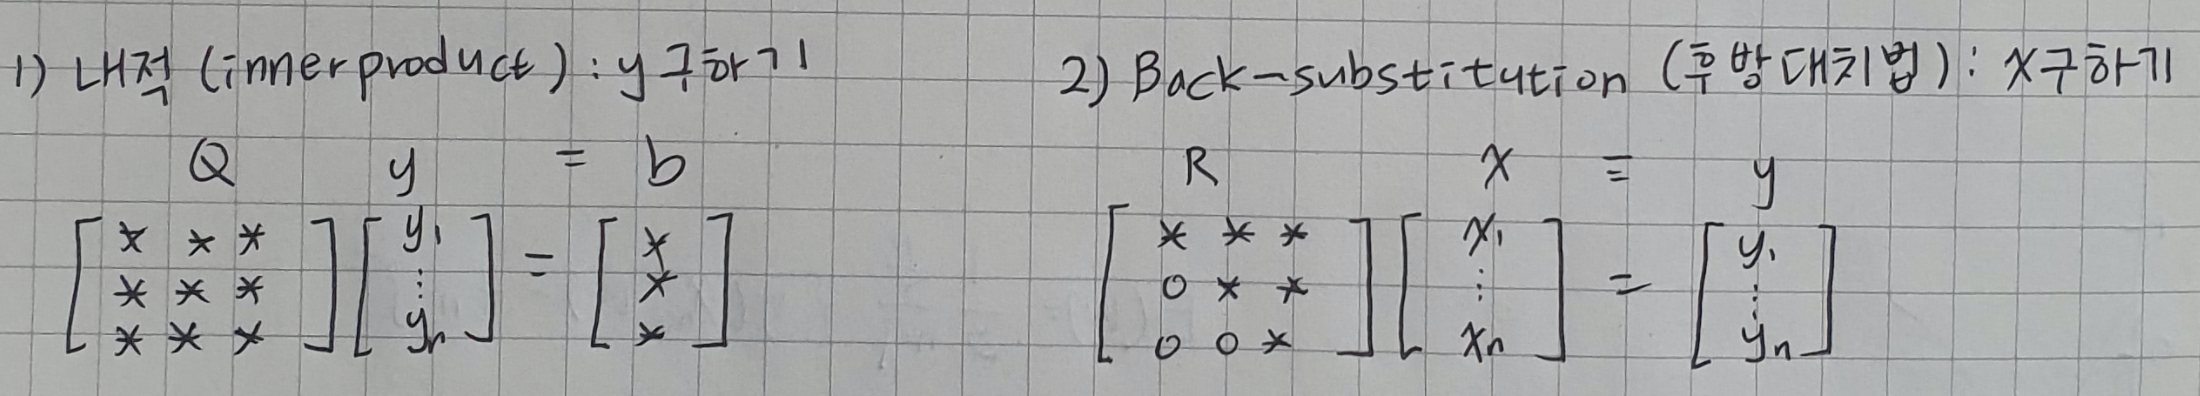 1) 내적 (inner product) : y 구하기
Q y = b
[ * * * ] [ y₁ ] = [ * ]
[ * * * ] [ ⋮ ] [ * ]
[ * * * ] [ yₙ ] [ * ]
2) Back-substitution (후방대치법) : x구하기
R x = y
[ * * * ] [ x₁ ] = [ y₁ ]
[ 0 * * ] [ ⋮ ] [ ⋮ ]
[ 0 0 * ] [ xₙ ] [ yₙ ]